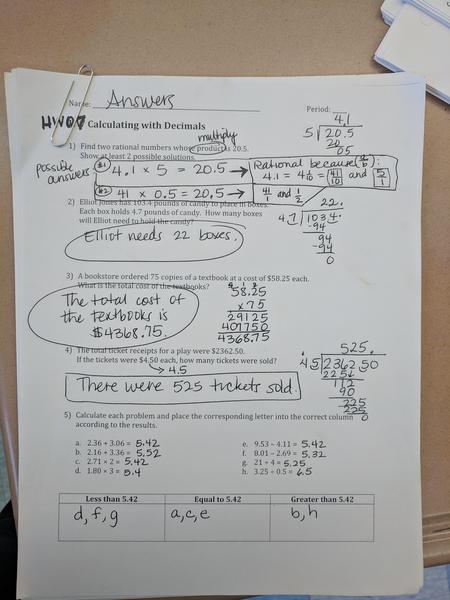 Name: Answers Period:
HW07 Calculating with Decimals
4.1
5 20.5
20
05
multiply
1) Find two rational numbers whose product is 20.5.
Show at least 2 possible solutions.
possible answers
#1 4.1 × 5 = 20.5 →
#2 41 × 0.5 = 20.5 →
Rational because a/b:
4.1 = 4 1/10 = 41/10 and 5/1
41/1 and 1/2
2) Elliot Jones has 103.4 pounds of candy to place in boxes.
Each box holds 4.7 pounds of candy. How many boxes
will Elliot need to hold the candy?
Elliot needs 22 boxes.
22.
4.7 103.4.
-94
94
-94
0
3) A bookstore ordered 75 copies of a textbook at a cost of $58.25 each.
What is the total cost of the textbooks?
The total cost of
the textbooks is
$4368.75.
58.25
x 75
29125
407750
4368.75
4) The total ticket receipts for a play were $2362.50.
If the tickets were $4.50 each, how many tickets were sold?
→ 4.5
There were 525 tickets sold.
525.
.45 2362.50
225
112
90
225
225
0
5) Calculate each problem and place the corresponding letter into the correct column
according to the results.
a. 2.36 + 3.06 = 5.42 e. 9.53 – 4.11 = 5.42
b. 2.16 + 3.36 = 5.52 f. 8.01 – 2.69 = 5.32
c. 2.71 × 2 = 5.42 g. 21 ÷ 4 = 5.25
d. 1.80 × 3 = 5.4 h. 3.25 ÷ 0.5 = 6.5
Less than 5.42 Equal to 5.42 Greater than 5.42
d, f, g a, c, e b, h